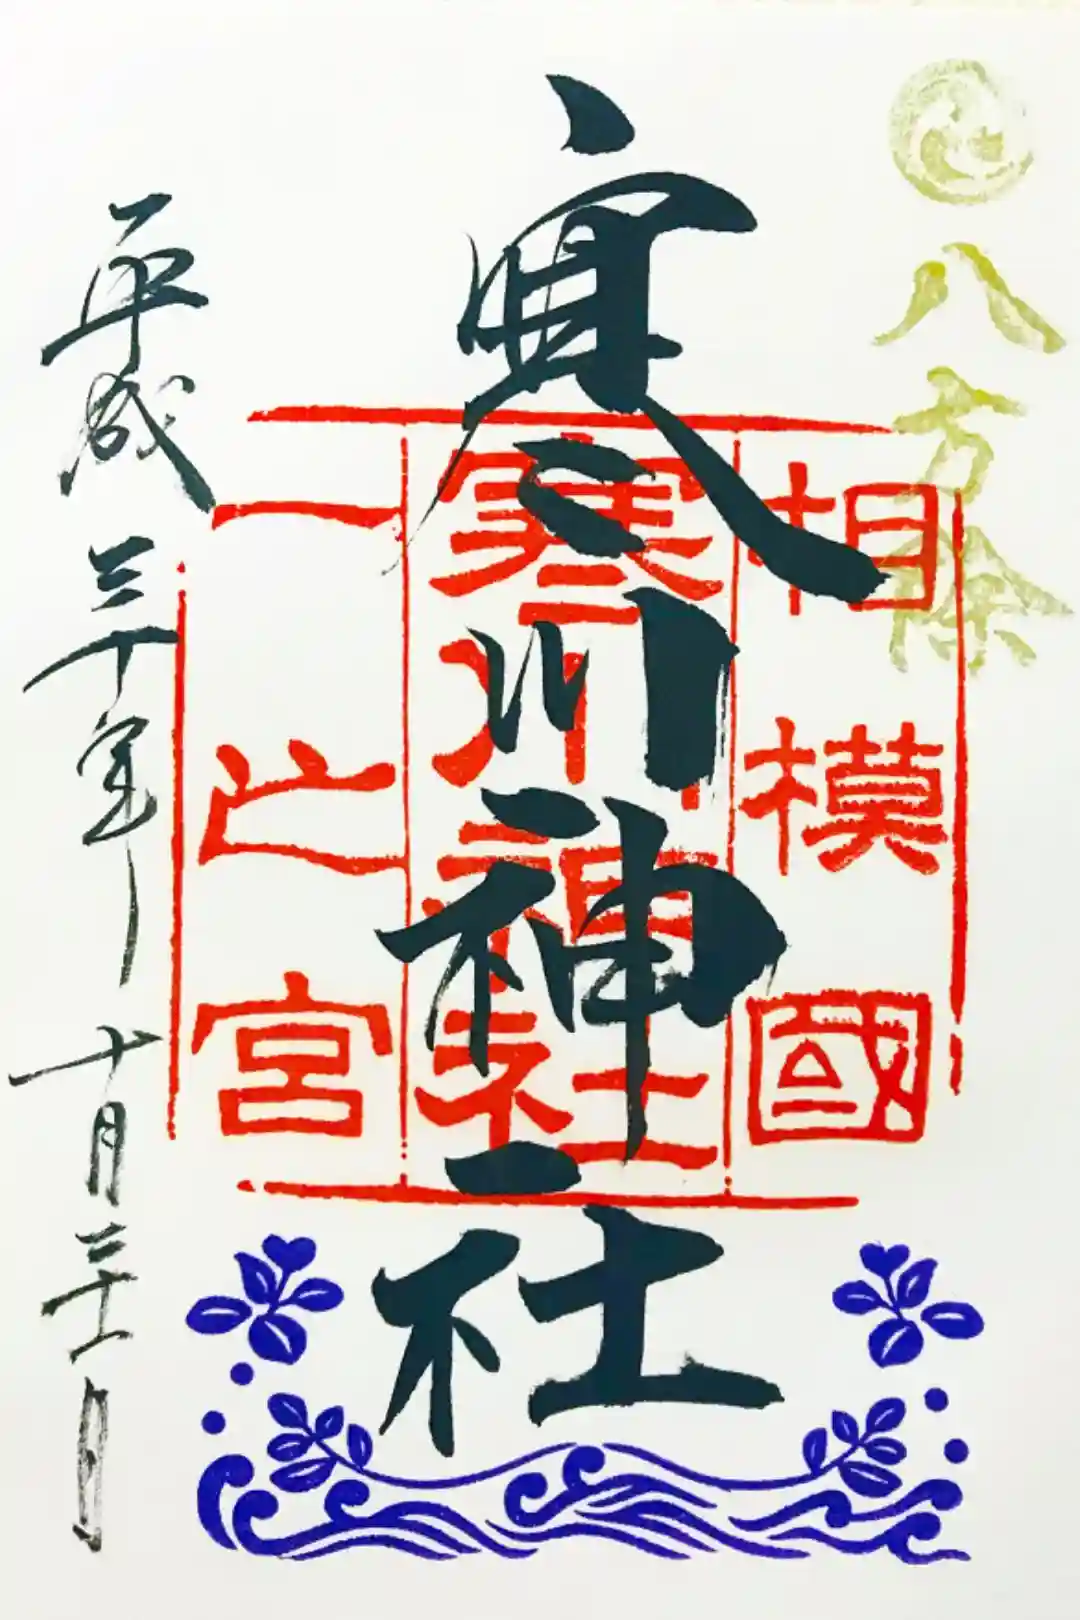 八方除
寒川神社
相模國
寒川神社
一之宮
平成三十年十月三十一日